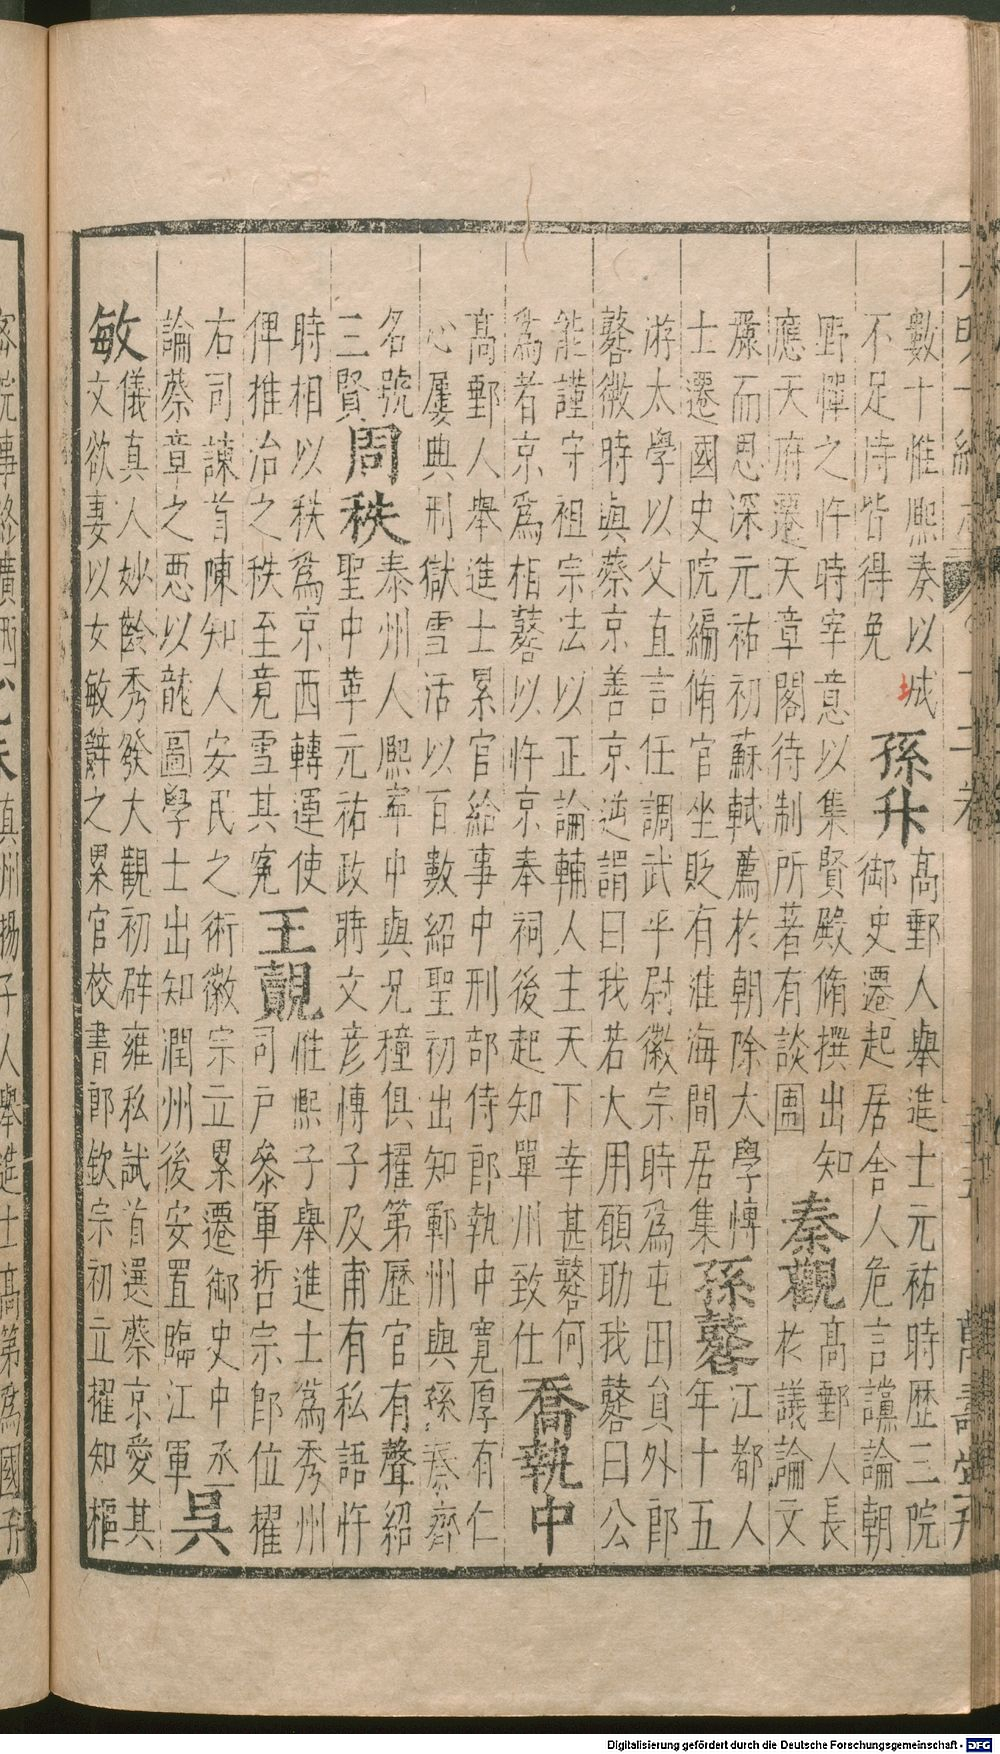 大明一統志 十二卷 萬壽堂刊
數十惟熙奏以城
不足恃皆得免
孫升
高郵人舉進士元祐時歷三院
御史遷起居舍人危言讜論朝
野憚之忤時宰意以集賢殿脩撰出知
應天府遷天章閣待制所著有談圃
秦觀
高郵人長
於議論文
麗而思深元祐初蘇軾薦於朝除太學愽
士遷國史院編脩官坐貶有淮海閒居集
孫鼛
江都人
年十五
游太學以父直言任調武平尉徽宗時為屯田貟外郎
鼛微時與蔡京善京逆謂曰我若大用願助我鼛曰公
能謹守祖宗法以正論輔人主天下幸甚鼛何
為者京為相鼛以忤京奉祠後起知單州致仕
喬執中
高郵人舉進士累官給事中刑部侍郎執中寬厚有仁
心屢典刑獄雪活以百數紹聖初出知鄆州與孫秦齊
名號
三賢
周秩
泰州人熙寧中與兄穜俱擢第歷官有聲紹
聖中革元祐政時文彥愽子及甫有私語忤
時相以秩為京西轉運使
俾推治之秩至竟雪其冤
王覿
惟熙子舉進士為秀州
司戶叅軍哲宗郎位擢
右司諫首陳知人安民之術徽宗立累遷御史中丞
論蔡章之惡以龍圖學士出知潤州後安置臨江軍
吳
敏
儀真人妙齡秀發大觀初辟雍私試首選蔡京愛其
文欲妻以女敏辭之累官校書郎欽宗初立擢知樞
真州揚子人舉進士高第為國子
Digitalisierung gefördert durch die Deutsche Forschungsgemeinschaft - DFG